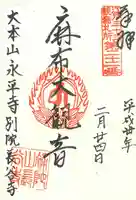 奉拝
平成卅年
二月廿四日
麻布大観音
大本山永平寺別院長谷寺